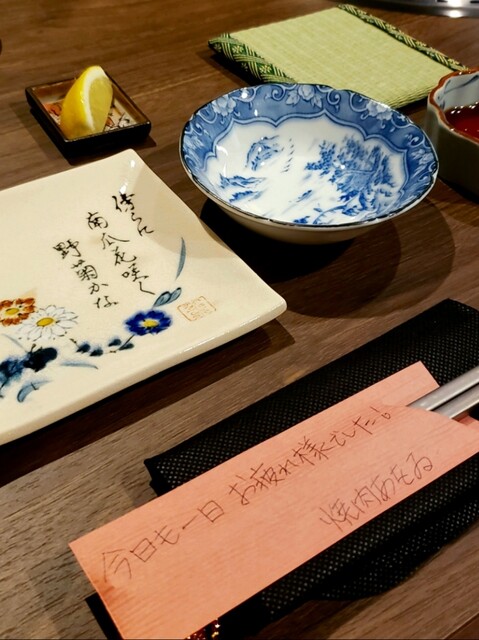 傍らに
南瓜花咲く
野菊かな
今日も一日 お疲れ様でした。
焼肉あたゐ